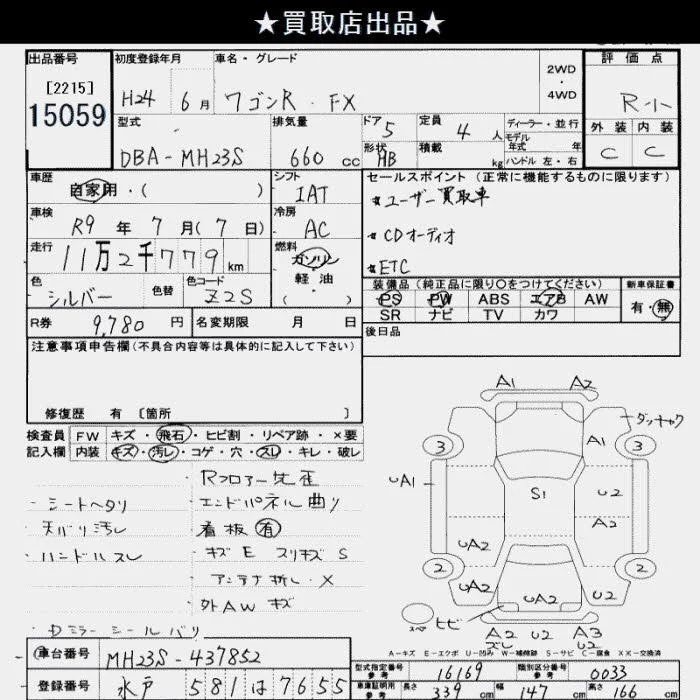 ★買取店出品★
出品番号
[2215]
15059
初度登録年月 H24 6月
車名・グレード ワゴンR FX
2WD・4WD
評価点 R-小
外装 内装
C C
型式 DBA-MH23S
排気量 660 cc
ドア 5
形状 HB
定員 4 人
積載 kg
ディーラー・並行
モデル年式 年
ハンドル 左・右
車歴 自家用・( )
シフト IAT
セールスポイント(正常に機能するものに限ります)
★ユーザー買取車
★CDオーディオ
★ETC
車検 R9 年 7 月(7 日)
冷房 AC
走行 11万2千779 km
燃料 ガソリン 軽油 ・( )
色 シルバー 色替
色コード Z2S
装備品(純正品に限り○をつけてください)
PS PW ABS エアB AW
SR ナビ TV カワ
新車保証書
有・無
R券 9,780 円
名変期限 月 日
後日品
注意事項申告欄(不具合内容等は具体的に記入して下さい)
修復歴 有 〔箇所 〕
検査員記入欄
FW キズ・飛石・ヒビ割・リペア跡・×要
内装 キズ・汚レ・コゲ・穴・スレ・キレ・破レ
・シートヘタリ
・天バリ汚レ
・ハンドルスレ
・Dミラーシールバリ
Rフロアー先歪
・エンドパネル曲り
・看板有
・キズE スリキズS
・アンテナ折レ・×
・外AWキズ
A1 A2
ダッキャク
3 A1 3
UA1 S1 U2
A2
UA2
2 2
UA2 UA2 U2
スペア ヒビ
A2 U2 A3
ズレ U2
A-キズ E-エクボ U-凹み W-補修跡 S-サビ C-腐食 XX-交換済
車台番号 MH23S-437852
登録番号 水戸 581 は 7655
型式指定番号 参考 16169
類別区分番号 参考 0033
車庫証明用 参考 長さ 339 cm 幅 147 cm 高さ 166 cm